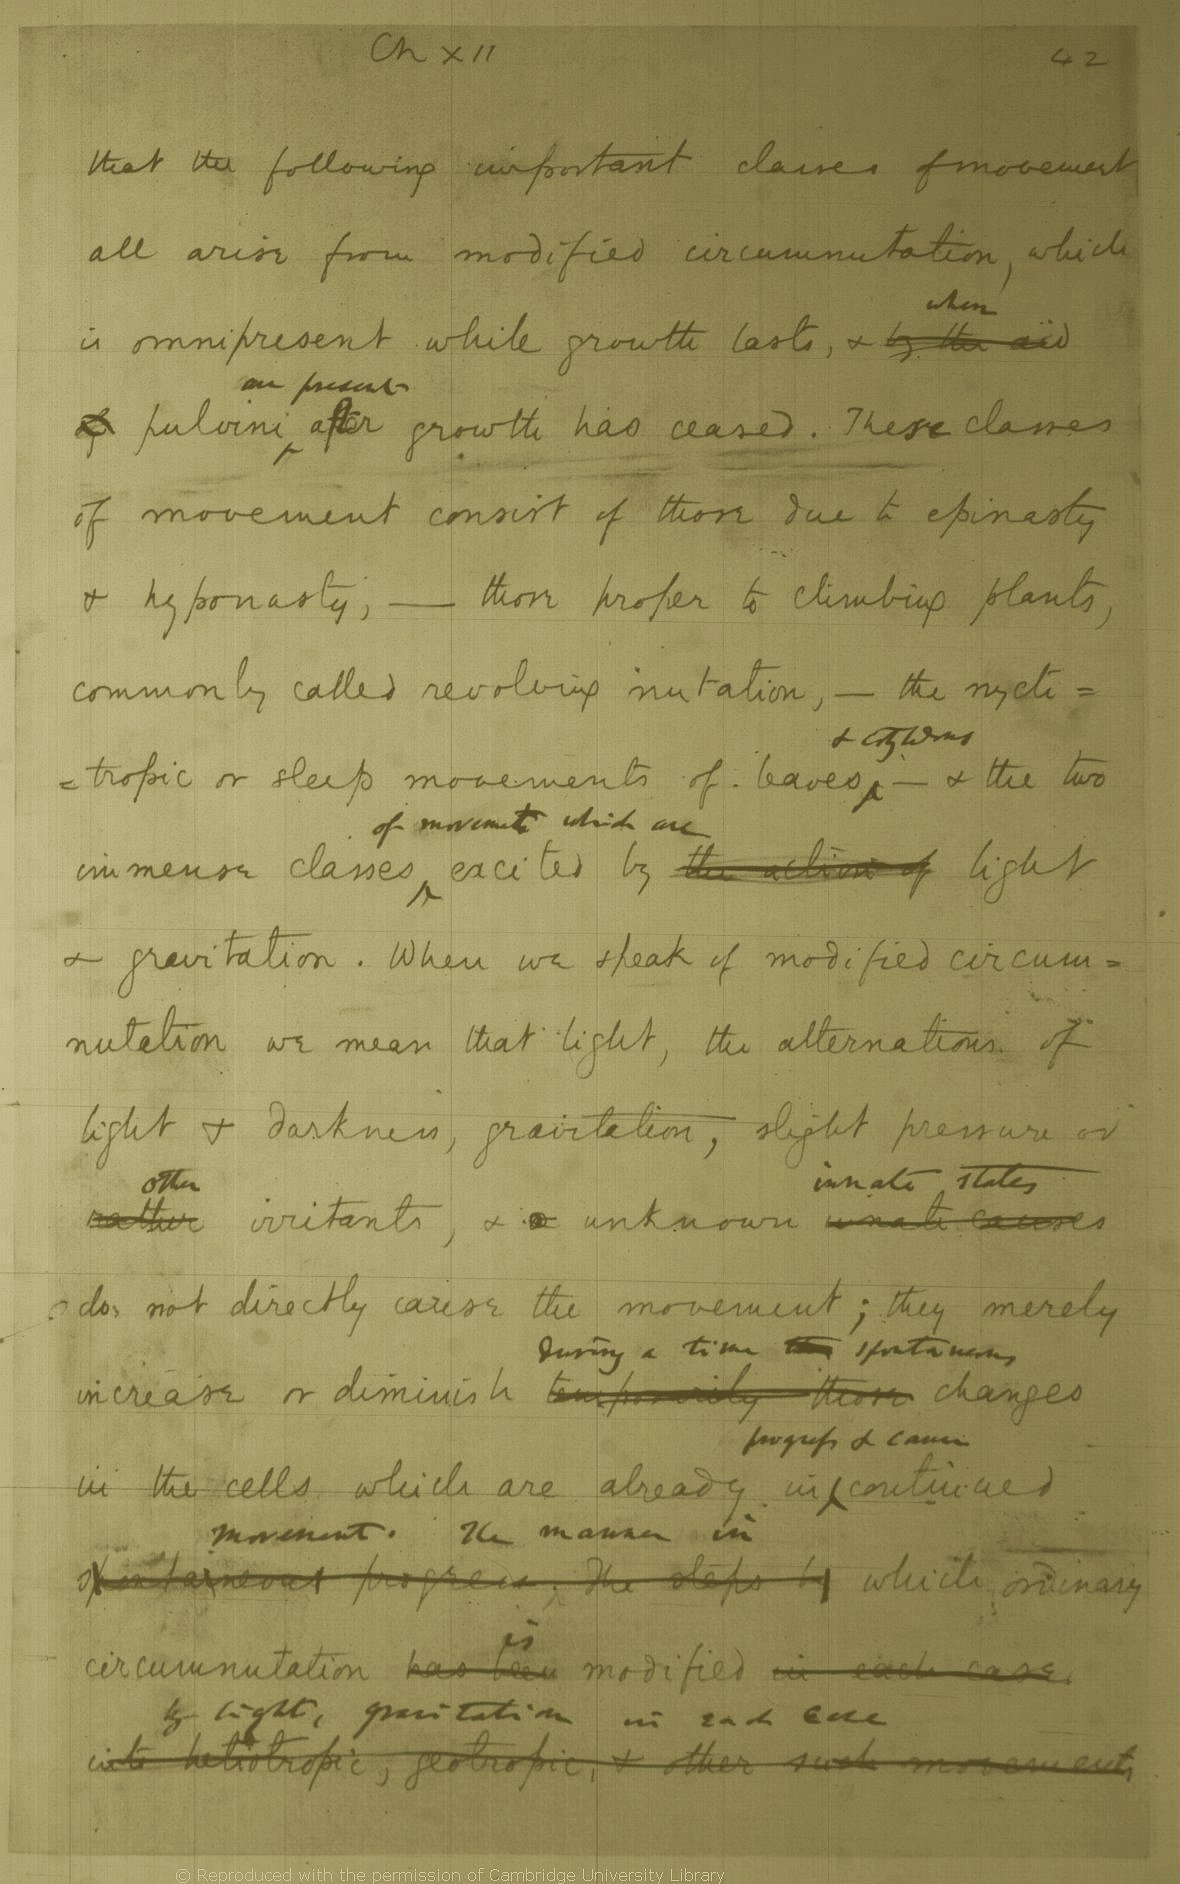 Ch XII 42
that the following important classes of movement
all arise from modified circumnutation, which
when
is omnipresent while growth lasts, & by the aid
are present
of pulvini after growth has ceased. These classes
of movement consist of those due to epinasty
& hyponasty, — those proper to climbing plants,
commonly called revolving nutation, — the nycti=
& cotyledons
=tropic or sleep movements of leaves, — & the two
of movements which are
immense classes excited by the action of light
& gravitation. When we speak of modified circum=
nutation we mean that light, the alternations of
light & darkness, gravitation, slight pressure or
other innate states
rather irritants, & unknown innate causes
do not directly cause the movement; they merely
during a time the spontaneous
increase or diminish temporarily those changes
progress & cause
in the cells which are already in continued
movement. The manner in
spontaneous progress. The steps by which ordinary
is
circumnutation has been modified in each case.
by light, gravitation in each case
into heliotropic, geotropic, & other such movements
© Reproduced with the permission of Cambridge University Library